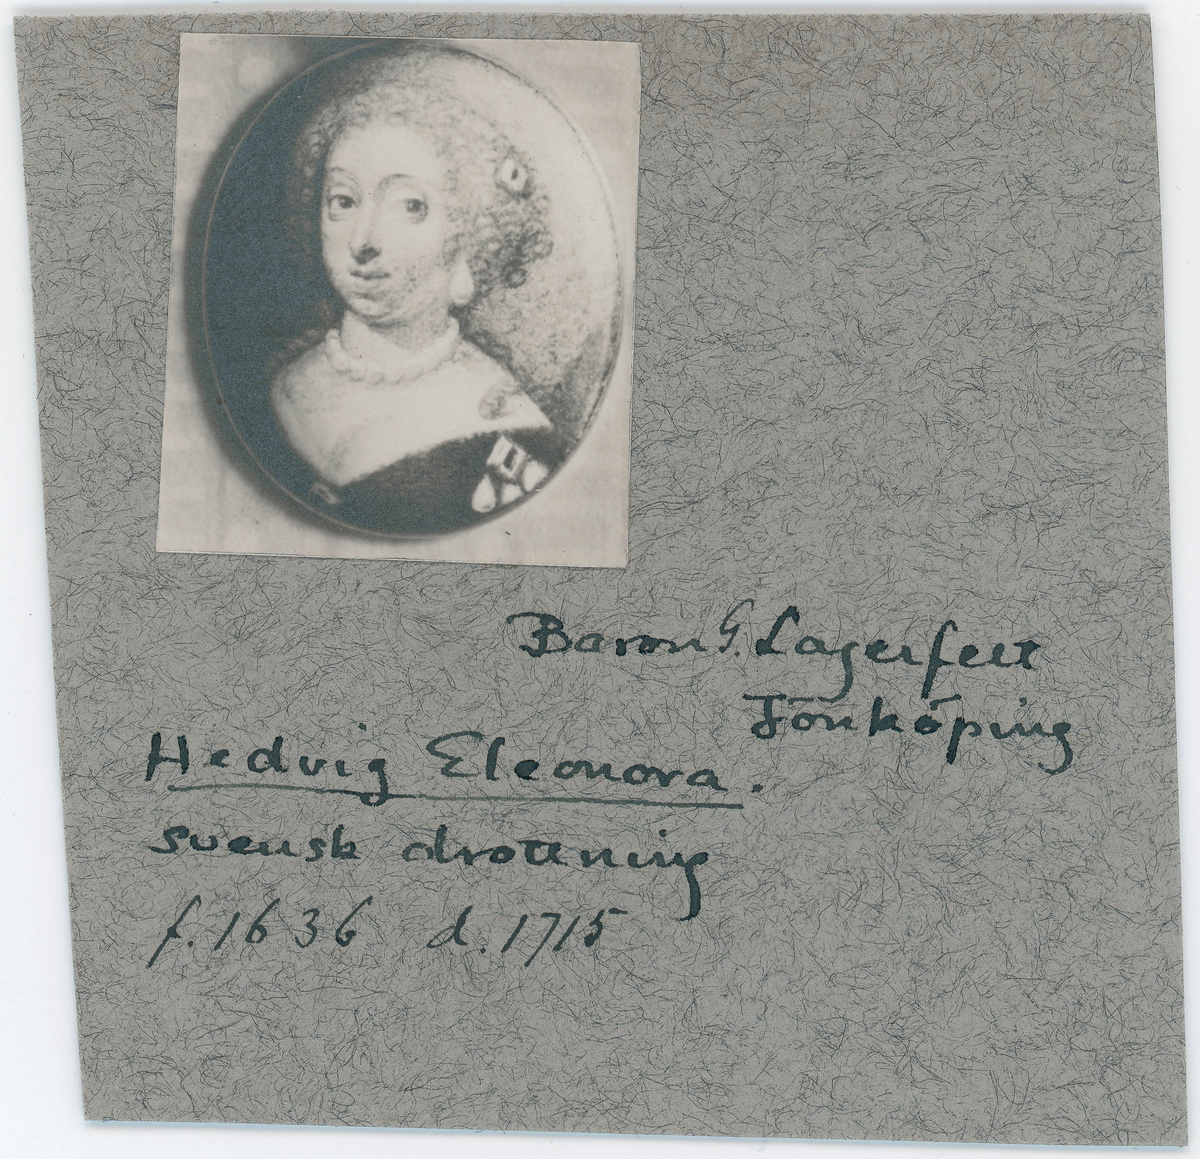 Baron G. Lagerfelt
Jönköping
Hedvig Eleonora.
svensk drottning
f. 1636 d. 1715